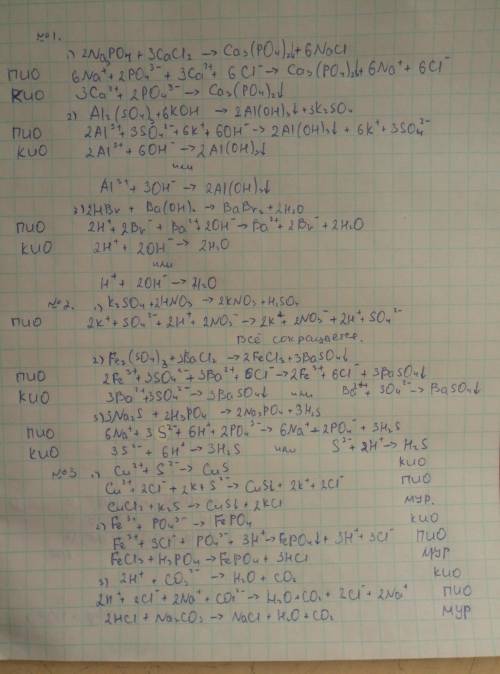 №1.
1) 2Na3PO4 + 3CaCl2 → Ca3(PO4)2↓ + 6NaCl
ПИО 6Na⁺ + 2PO4³⁻ + 3Ca²⁺ + 6Cl⁻ → Ca3(PO4)2↓ + 6Na⁺ + 6Cl⁻
КИО 3Ca²⁺ + 2PO4³⁻ → Ca3(PO4)2↓
2) Al2(SO4)3 + 6KOH → 2Al(OH)3↓ + 3K2SO4
ПИО 2Al³⁺ + 3SO4²⁻ + 6K⁺ + 6OH⁻ → 2Al(OH)3↓ + 6K⁺ + 3SO4²⁻
КИО 2Al³⁺ + 6OH⁻ → 2Al(OH)3↓
или
Al³⁺ + 3OH⁻ → 2Al(OH)3↓
3) 2HBr + Ba(OH)2 → BaBr2 + 2H2O
ПИО 2H⁺ + 2Br⁻ + Ba²⁺ + 2OH⁻ → Ba²⁺ + 2Br⁻ + 2H2O
КИО 2H⁺ + 2OH⁻ → 2H2O
или
H⁺ + 2OH⁻ → H2O
№2. 1) K2SO4 + 2HNO3 → 2KNO3 + H2SO4
ПИО 2K⁺ + SO4²⁻ + 2H⁺ + 2NO3⁻ → 2K⁺ + 2NO3⁻ + 2H⁺ + SO4²⁻
Всё сокращается.
2) Fe2(SO4)3 + 3BaCl2 → 2FeCl3 + 3BaSO4↓
ПИО 2Fe³⁺ + 3SO4²⁻ + 3Ba²⁺ + 6Cl⁻ → 2Fe³⁺ + 6Cl⁻ + 3BaSO4↓
КИО 3Ba²⁺ + 3SO4²⁻ → 3BaSO4↓ или Ba²⁺ + SO4²⁻ → BaSO4↓
3) 3Na2S + 2H3PO4 → 2Na3PO4 + 3H2S
ПИО 6Na⁺ + 3S²⁻ + 6H⁺ + 2PO4³⁻ → 6Na⁺ + 2PO4³⁻ + 3H2S
КИО 3S²⁻ + 6H⁺ → 3H2S или S²⁻ + 2H⁺ → H2S
№3 1) Cu²⁺ + S²⁻ → CuS КИО
Cu²⁺ + 2Cl⁻ + 2K⁺ + S²⁻ → CuS↓ + 2K⁺ + 2Cl⁻ ПИО
CuCl2 + K2S → CuS↓ + 2KCl МУР.
2) Fe³⁺ + PO4³⁻ → FePO4 КИО
Fe³⁺ + 3Cl⁻ + PO4³⁻ + 3H⁺ → FePO4↓ + 3H⁺ + 3Cl⁻ ПИО
FeCl3 + H3PO4 → FePO4 + 3HCl МУР
3) 2H⁺ + CO3²⁻ → H2O + CO2 КИО
2H⁺ + 2Cl⁻ + 2Na⁺ + CO3²⁻ → H2O + CO2 + 2Cl⁻ + 2Na⁺ ПИО
2HCl + Na2CO3 → NaCl + H2O + CO2 МУР